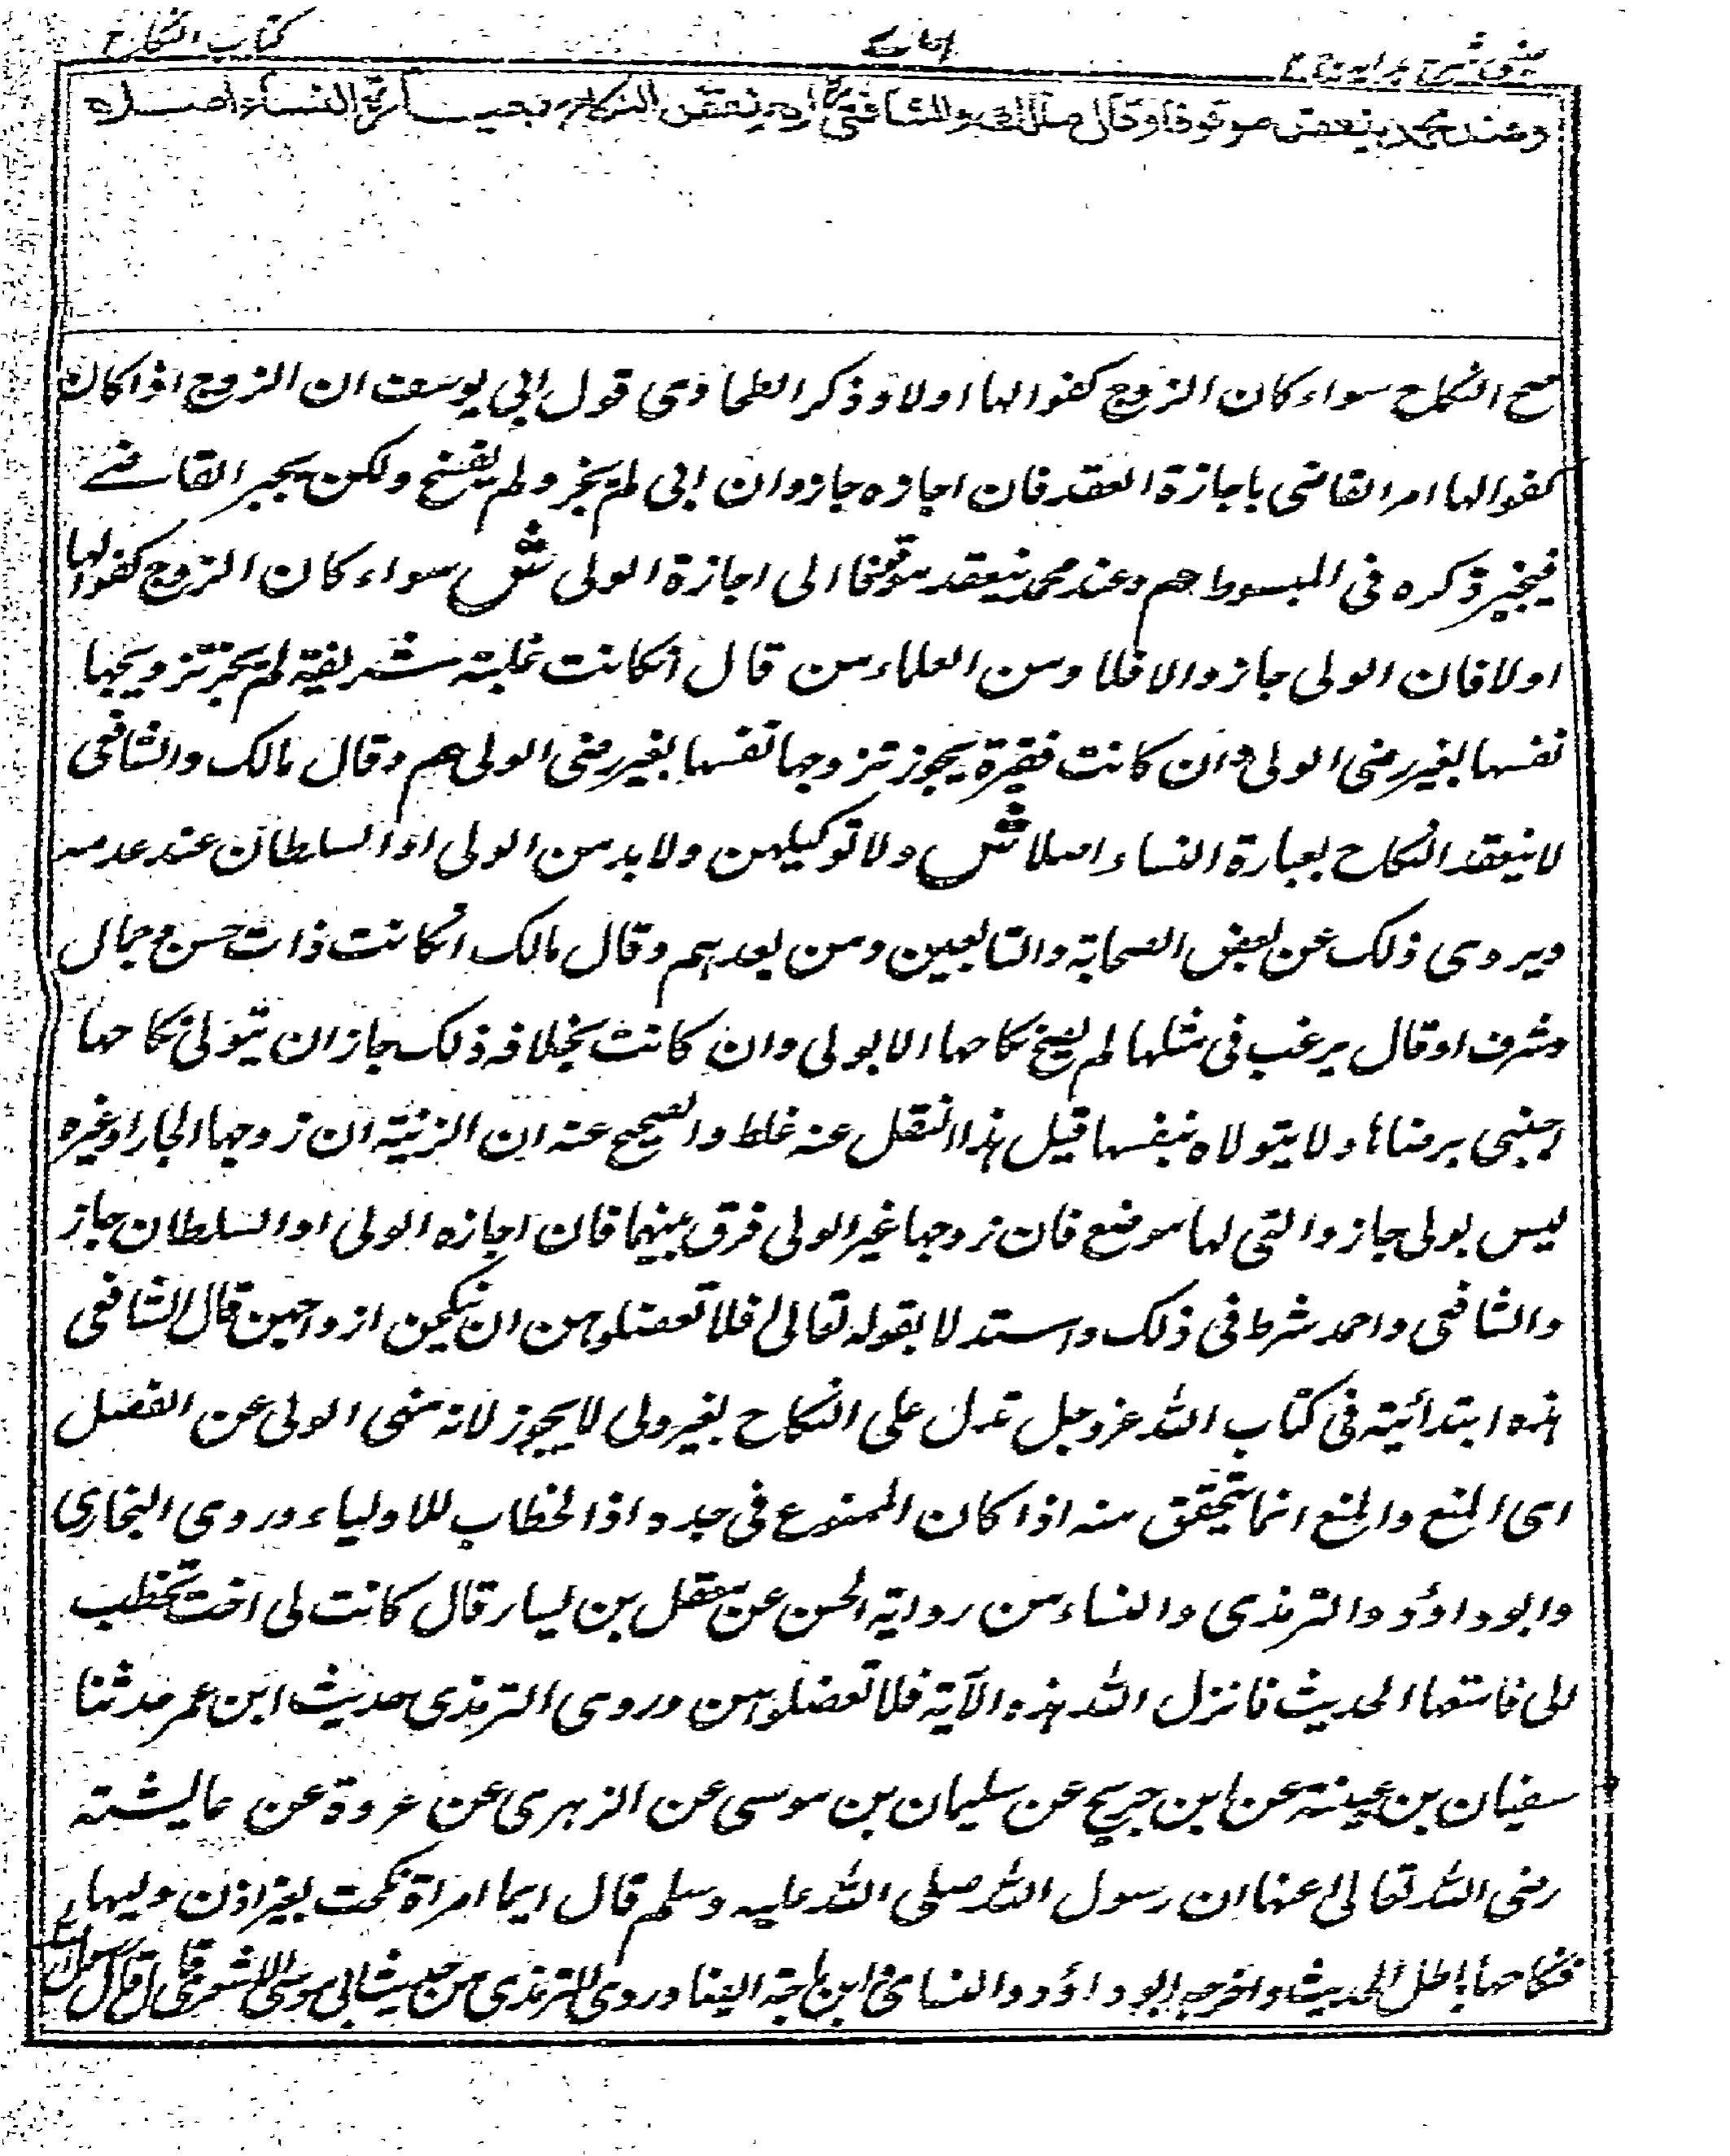 عینی شرح ہدایہ ج ۲
کتاب النکاح
وعند محمد ينعقد موقوفا وقال مالك والشافعي لا ينعقد النكاح بعبارة النساء اصلا
صح النكاح سواء كان الزوج كفوا لها اولا وذكر الطحاوى قول ابى يوسف ان الزوج اذا كان
كفوا لها امر القاضى باجازة العقد فان اجازه جاز وان ابى لم يجز ولم يفسخ ولكن يجبر القاضے
فيجيز ذكره فى المبسوط هم وعند محمد ينعقد موقوفا الى اجازة الولى ش سواء كان الزوج كفوا لها
اولا فان الولى جاز والا فلا ومن العلماء من قال انكانت غلبته شريفية لم يجز تزويجها
نفسها بغير رضى الولى وان كانت فقيرة يجوز تزوجها نفسها بغير رضى الولى هم وقال مالك والشافعى
لا ينعقد النكاح بعبارة النساء اصلا ش ولا توكيلهن ولا بد من الولى او السلطان عند عدمه
ويروى ذلك عن بعض الصحابة والتابعين ومن بعدهم وقال مالك انكانت ذات حسن وجمال
وشرف او قال يرغب فى مثلها لم يصح نكاحها الا بولى وان كانت بخلاف ذلك جاز ان يتولى نكاحها
اجنبى برضاها ولا يتولاه بنفسها قيل هذا النقل عنه غلط والصحيح عنه ان الزنية ان زوجها الجار او غيره
ليس بولى جاز والتى لها موضع فان زوجها غير الولى فرق بينهما فان اجازه الولى او السلطان جاز
والشافعى واحمد شرط فى ذلك واستدلا بقوله تعالى فلا تعضلوهن ان ينكحن ازواجهن قال الشافعى
هذه ابتدائية فى كتاب الله عز وجل تدل على النكاح بغير ولى لا يجوز لانه نهى الولى عن الفضل
اى المنع والمنع انما يتحقق منه اذا كان الممنوع فى جده اذ الخطاب للاولياء وروى البخارى
وابو داؤد والترمذى والنساء من رواية الحسن عن معقل بن يسار قال كانت لى اخت تخطب
الى فامنعها الحديث فانزل الله هذه الآية فلا تعضلوهن وروى الترمذى حديث ابن عمر حدثنا
سفيان بن عيينة عن ابن جريج عن سليمان بن موسى عن الزهرى عن عروة عن عايشة
رضى الله تعالى عنها ان رسول الله صلى الله عليه وسلم قال ايما امراة نكحت بغير اذن وليها
فنكاحها باطل الحديث واخرجه ابو داؤد والنسائ وابن ماجة ايضا وروى الترمذى من حديث ابى موسى الاشعرى قال قال